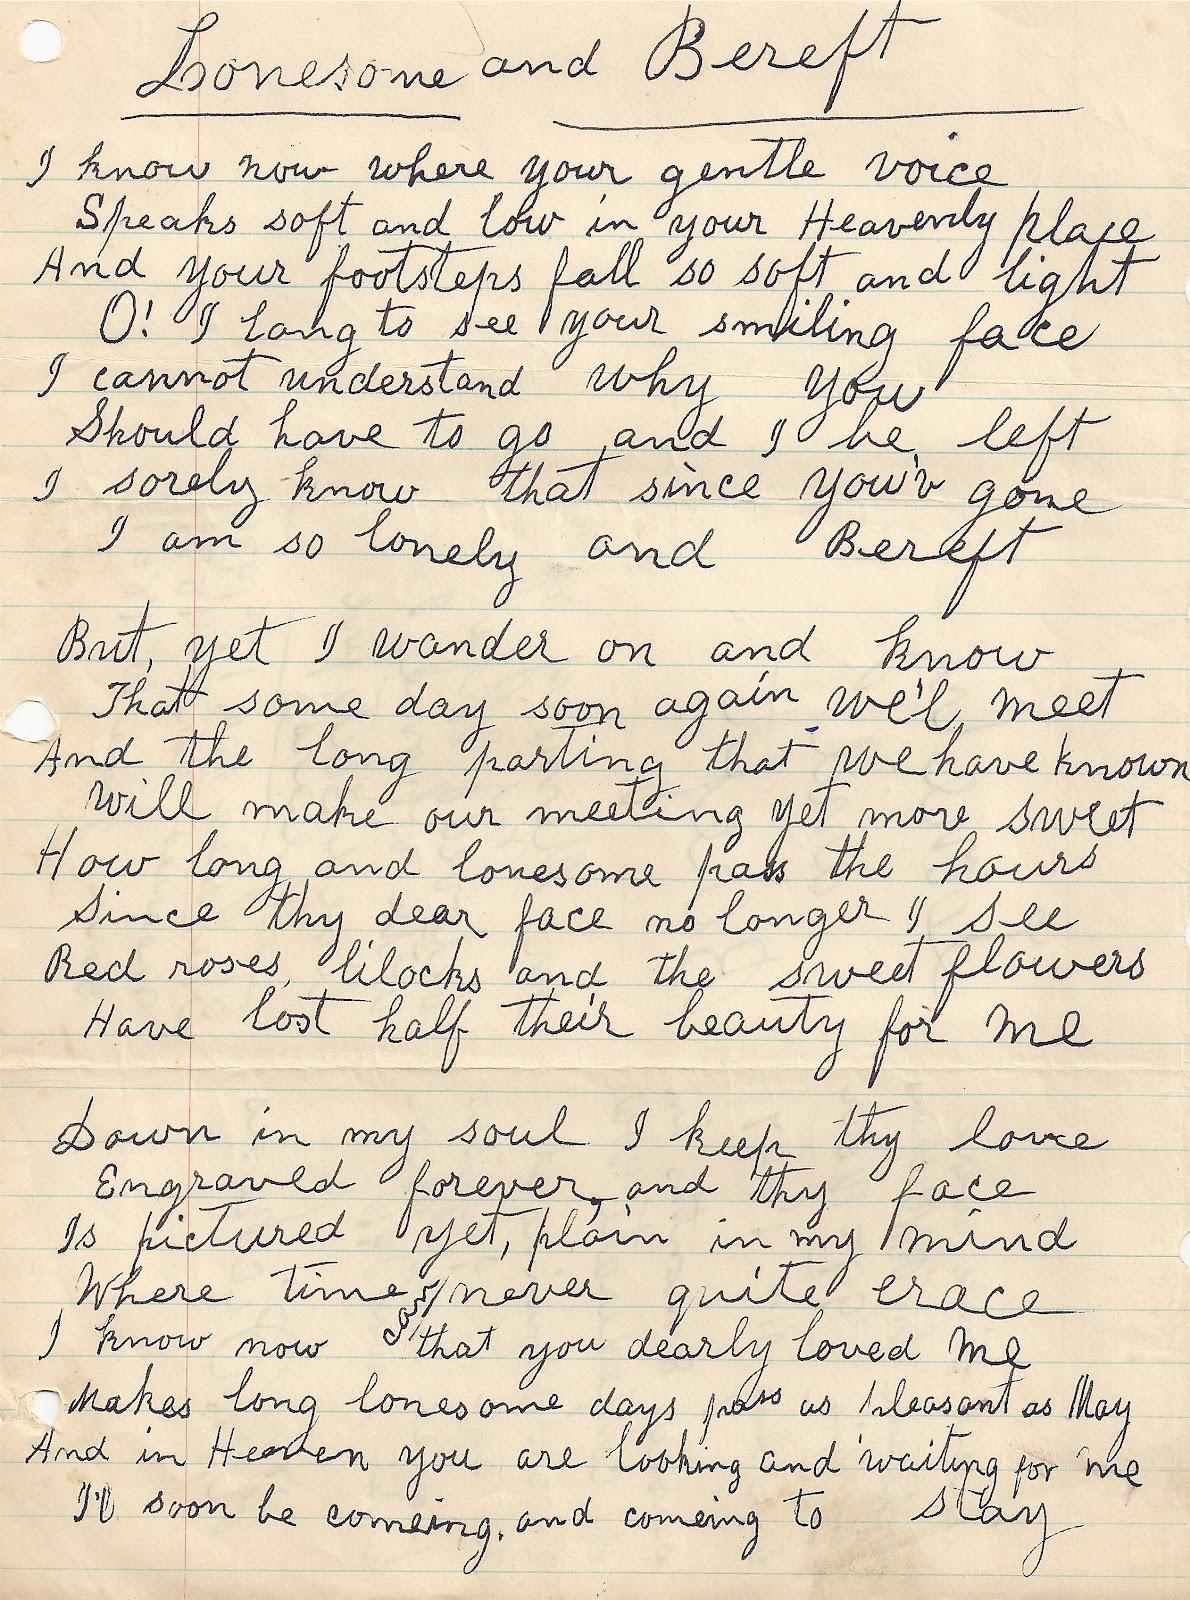 Lonesome and Bereft
I know now where your gentle voice
Speaks soft and low in your Heavenly place
And your footsteps fall so soft and light
O! I long to see your smiling face
I cannot understand why you
Should have to go and I be left
I sorely know that since you'v gone
I am so lonely and Bereft
But, yet I wander on and know
That some day soon again we'l meet
And the long parting that we have known
Will make our meeting yet more sweet
How long and lonesome pass the hours
Since thy dear face no longer I see
Red roses, lilocks and the sweet flowers
Have lost half their beauty for me
Down in my soul I keep thy love
Engraved forever, and thy face
Is pictured yet, plain in my mind
Where time can never quite erace
I know now that you dearly loved me
Makes long lonesome days pass as pleasant as May
And in Heaven you are looking and waiting for me
I'll soon be comeing, and comeing to stay